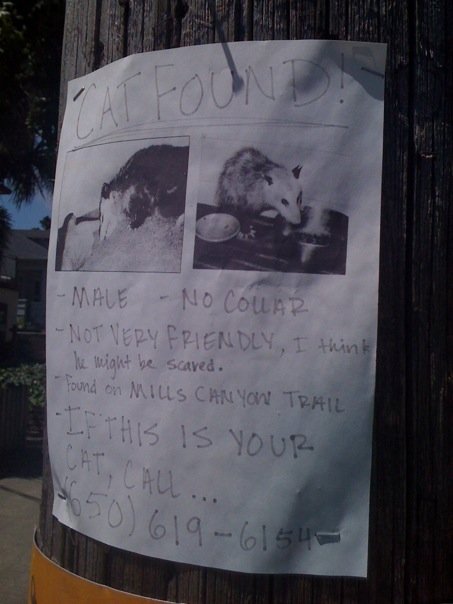 CAT FOUND!
- MALE - NO COLLAR
- NOT VERY FRIENDLY, I think
he might be scared.
- Found on MILLS CANYON TRAIL
- IF THIS IS YOUR
CAT, CALL...
(650) 619-6154